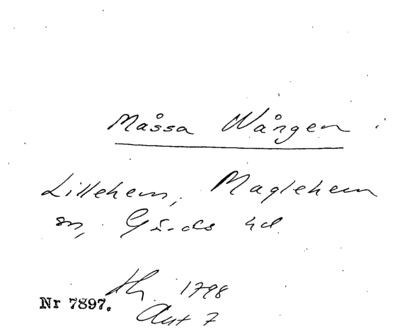 Måssa Wången
Lillehem, Maglehem
sn, Gärds hd
1798
Nr 7897. Akt 7